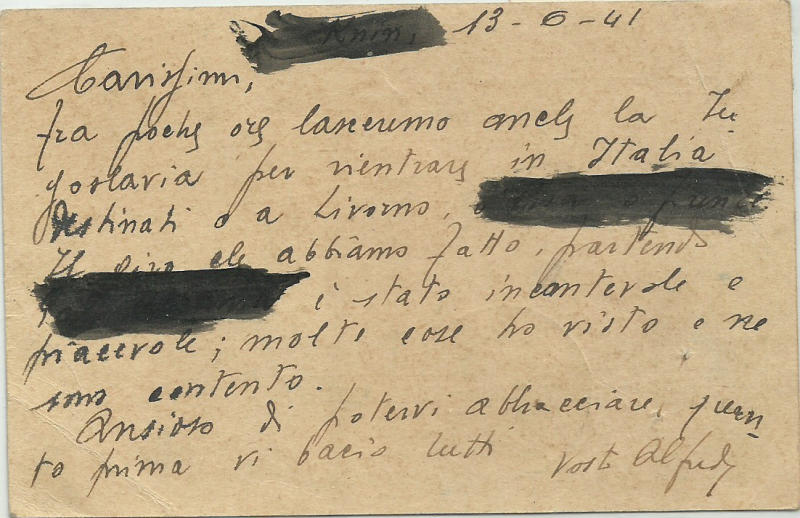 Knin, 13-6-41
Carissimi,
fra poche ore lasceremo anche la Ju
goslavia per rientrare in Italia
destinati o a Livorno,
Il giro che abbiamo fatto, partendo
è stato incantevole e
piacevole; molte cose ho visto e ne
sono contento.
Ansioso di potervi abbracciare, quan
to prima vi bacio tutti
vostr Alfredo